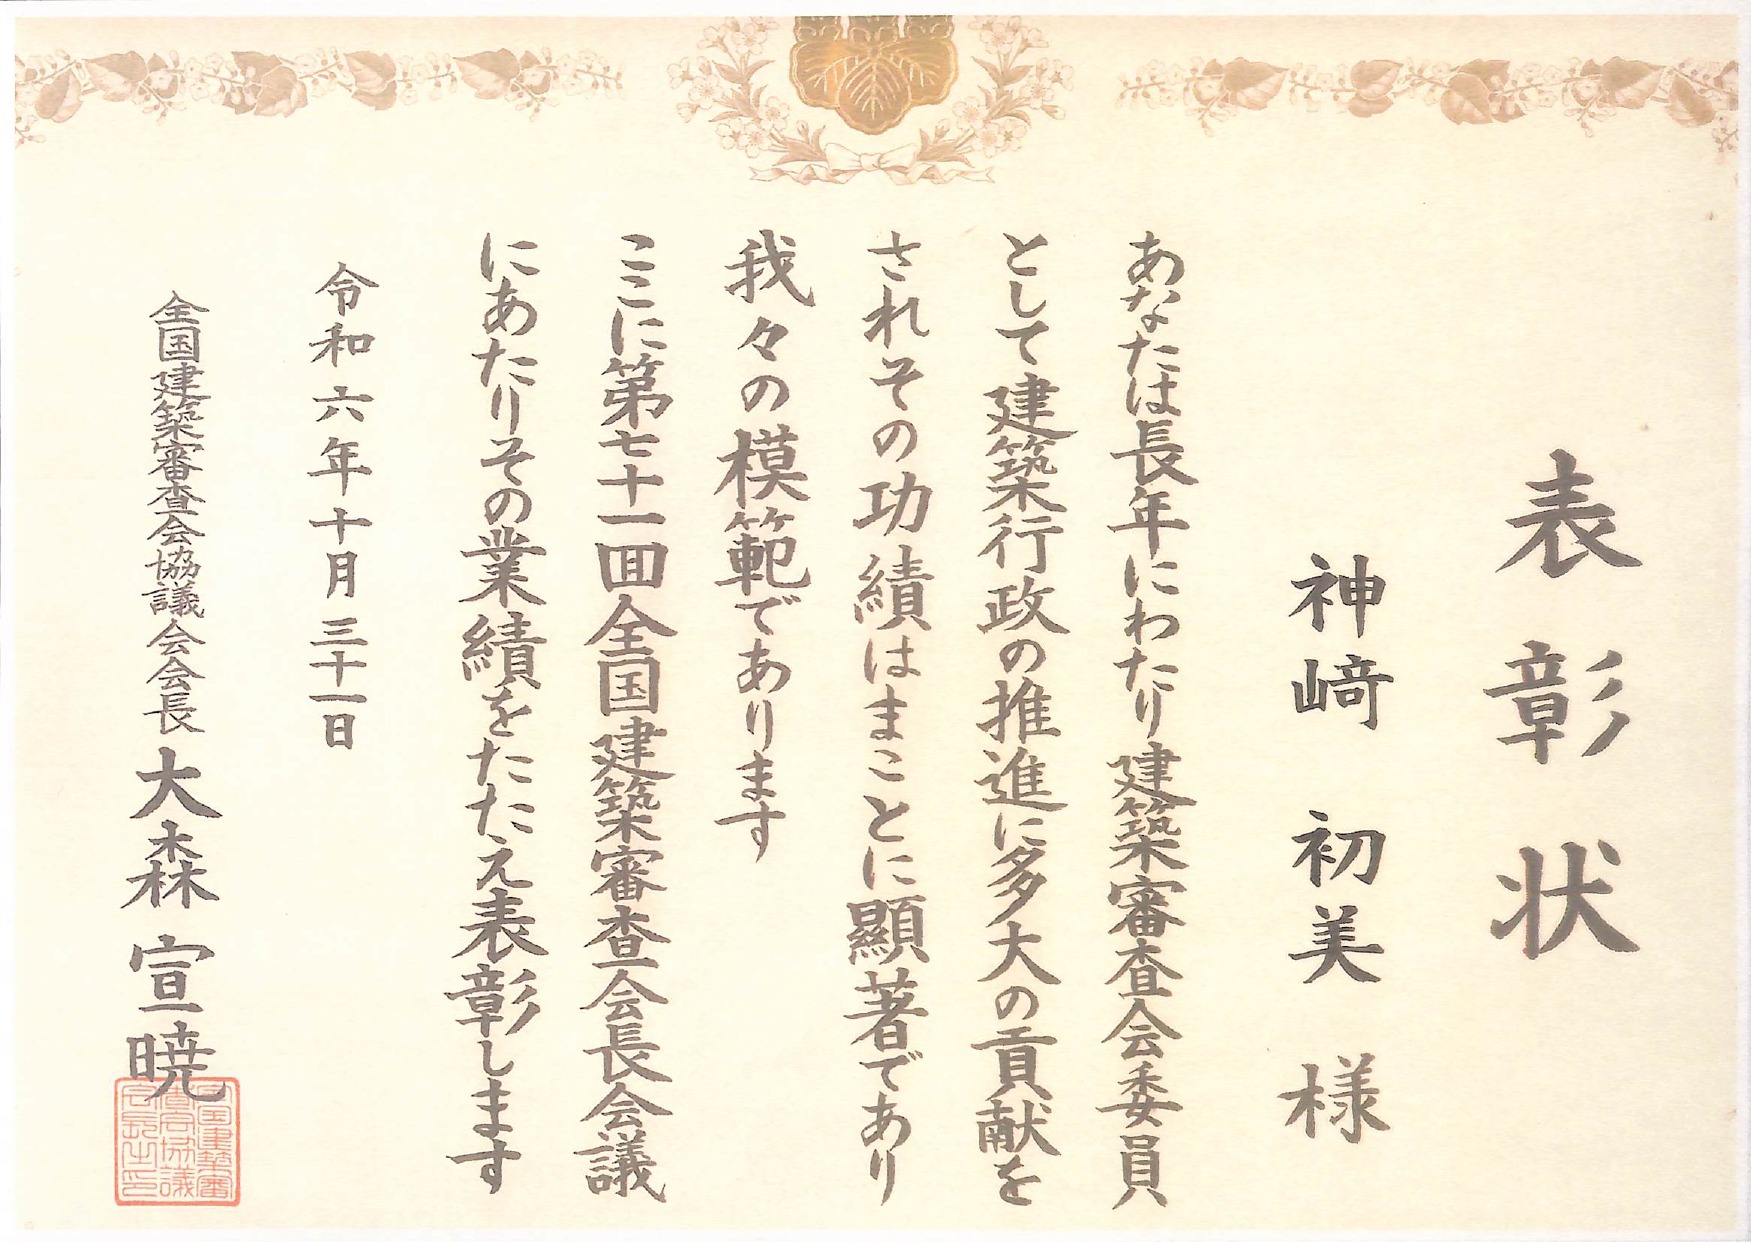 表彰状
神﨑 初美 様
あなたは長年にわたり建築審査会委員
として建築行政の推進に多大の貢献を
されその功績はまことに顕著であり
我々の模範であります
ここに第七十一回全国建築審査会長会議
にあたりその業績をたたえ表彰します
令和六年十月三十一日
全国建築審査会協議会会長 大森 宣暁